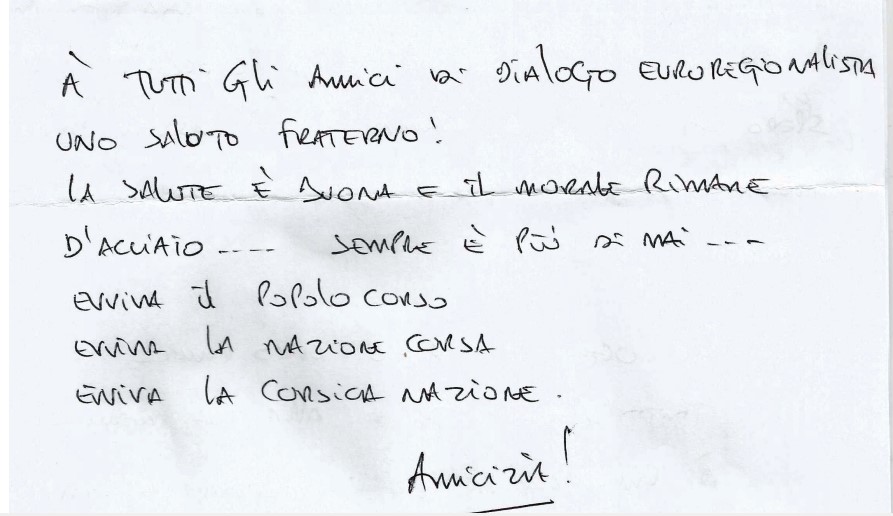 À TUTTI Gli Amici di DIALOGO EUROREGIONALISTA
UNO SALUTO FRATERNO!
LA SALUTE È BUONA E IL MORALE RIMANE
D'ACCIAIO ---- SEMPRE È PIÙ DI MAI ---
EVVIVA il POPOLO CORSO
EVVIVA LA NAZIONE CORSA
EVVIVA LA CORSICA NAZIONE.
Amicizia!